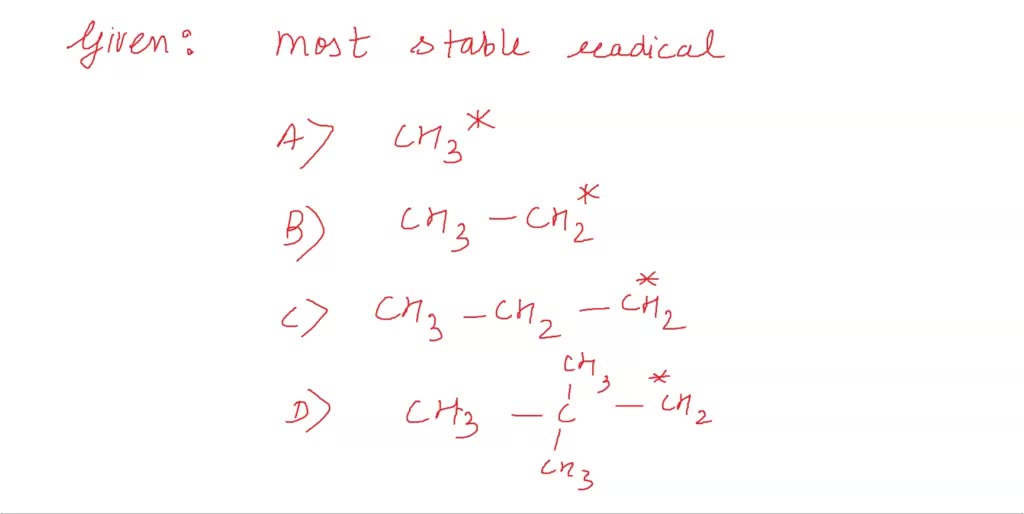 Given: most stable readical
A) CH3*
B) CH3 - CH2*
C) CH3 - CH2 - CH2*
CH3
D) CH3 - C - CH2*
CH3